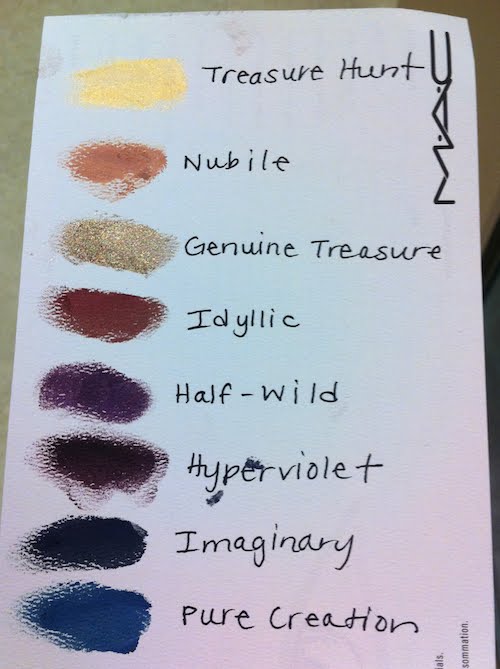 Treasure Hunt
MAC
Nubile
Genuine Treasure
Idyllic
Half-Wild
Hyperviolet
Imaginary
Pure Creation
als.
sommation.